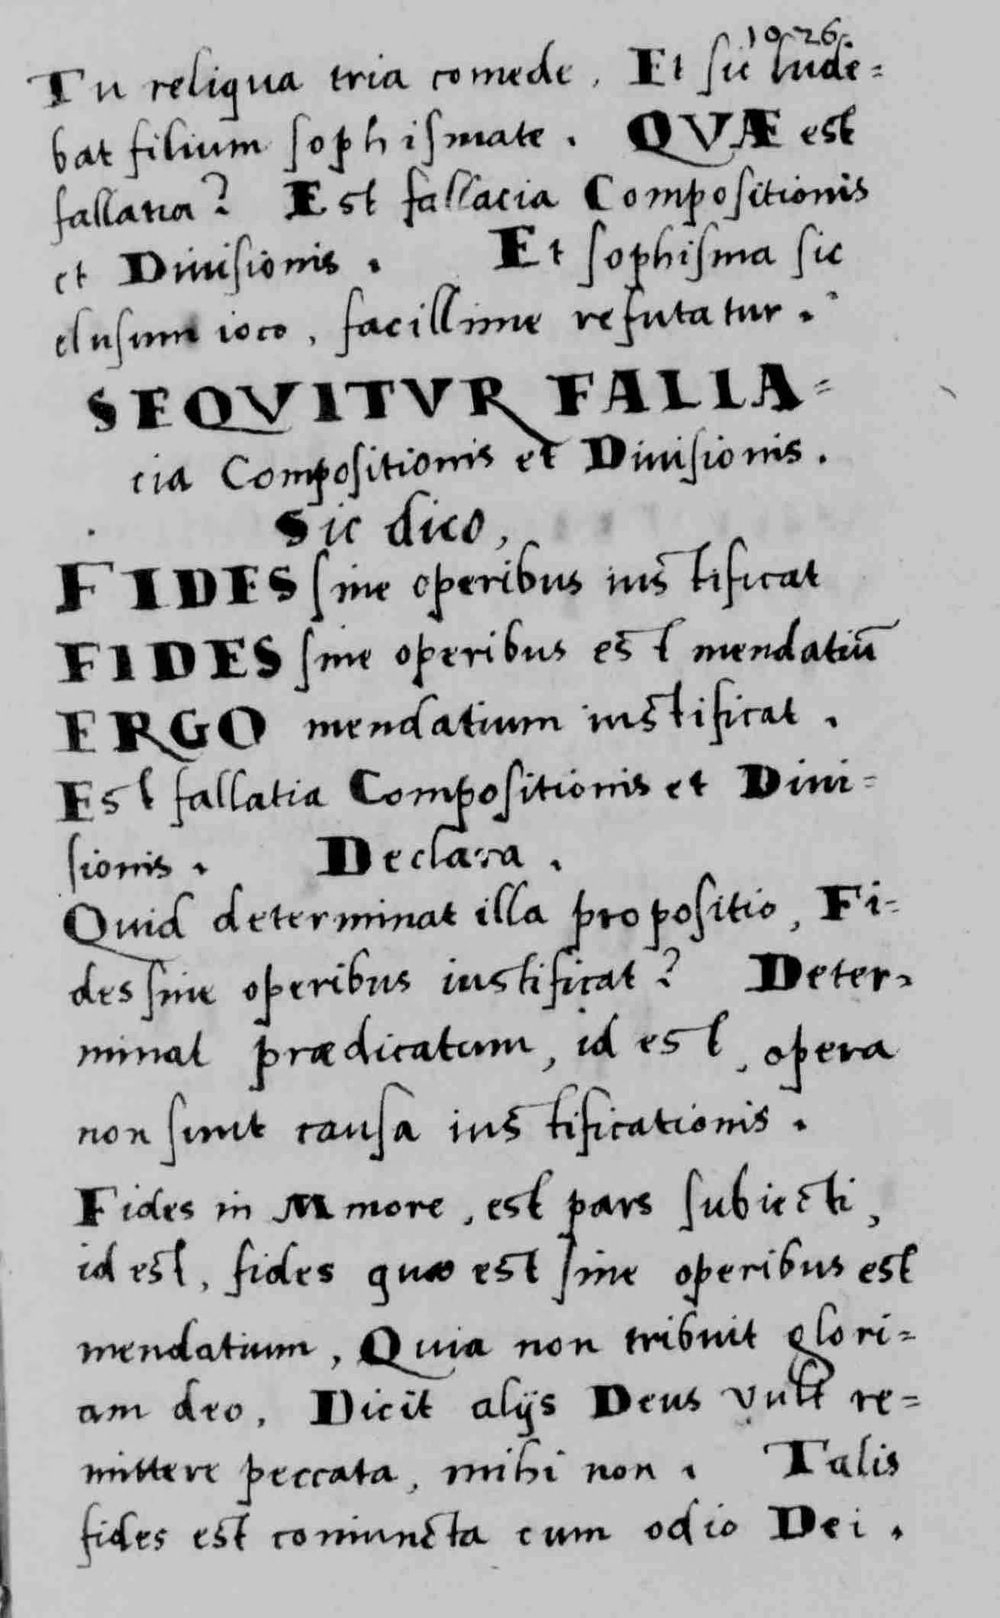 1026.
Tu reliqua tria comede. Et sic lude=
bat filium sophismate. QVÆ est
fallatia? Est fallacia Compositionis
et Diuisionis. Et sophisma sic
elusum ioco, facillime refutatur.
SEQVITVR FALLA=
cia Compositionis et Diuisionis.
Sic dico,
FIDES sine operibus iustificat
FIDES sine operibus est mendatiū
ERGO mendatium iustificat.
Est fallatia Compositionis et Diui=
sionis. Declara.
Quid determinat illa propositio, Fi=
des sine operibus iustificat? Deter=
minat prædicatum, id est, opera
non sunt causa iustificationis.
Fides in Minore, est pars subiecti,
id est, fides quæ est sine operibus est
mendatium, Quia non tribuit glori=
am deo, Dicit alijs Deus vult re=
mittere peccata, mihi non. Talis
fides est coniuncta cum odio Dei.